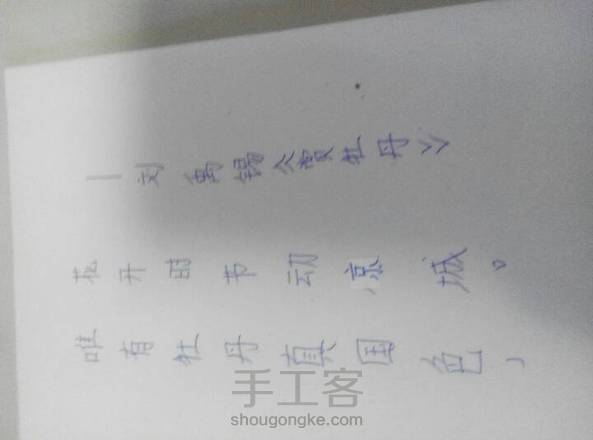 唯有牡丹真国色,
花开时节动京城。
—刘禹锡《赏牡丹》
手工客
shougongke.com